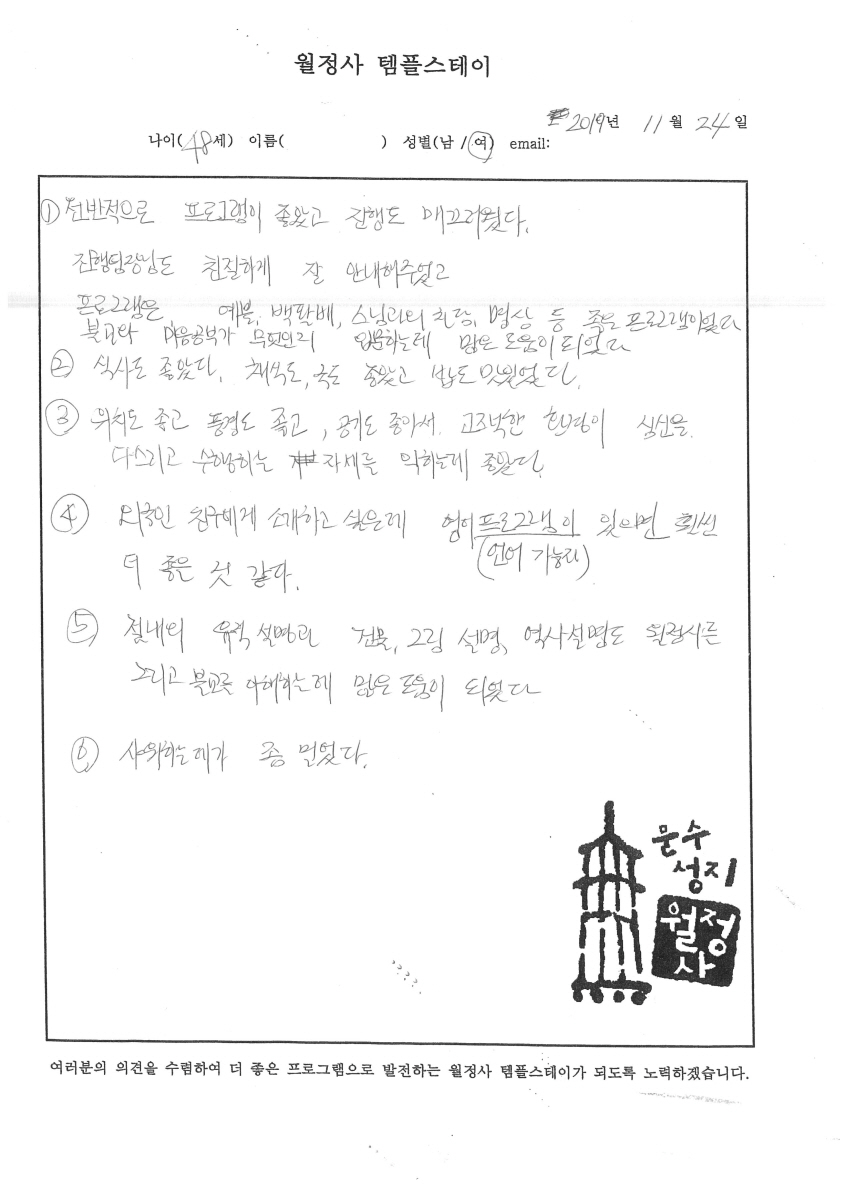 월정사 템플스테이
2019년 11월 24일
나이(48세) 이름( ) 성별(남/여) email:
① 전반적으로 프로그램이 좋았고 진행도 매끄러웠다.
진행팀장님도 친절하게 잘 안내해주었고
프로그램은 예불, 백팔배, 스님과의 차담, 명상 등 좋은 프로그램이었다
불교와 마음공부가 입문하는데 많은 도움이 되었다
② 식사도 좋았다. 채식도, 국도 좋았고 밥도 맛있었다.
③ 위치도 좋고 풍경도 좋고, 공기도 좋아서. 고즈넉한 환경이 심신을
다스리고 수행하는 자세를 익히는데 좋았다.
④ 외국인 친구에게 소개하고 싶은데 영어프로그램이 있으면 훨씬
(언어 가능자)
더 좋은 것 같다.
⑤ 절내의 유적 설명과 건물, 그림 설명, 역사설명도 월정사를
그리고 불교를 이해하는데 많은 도움이 되었다
⑥ 샤워하는데가 좀 멀었다.
문수
성지
월정
사
여러분의 의견을 수렴하여 더 좋은 프로그램으로 발전하는 월정사 템플스테이가 되도록 노력하겠습니다.